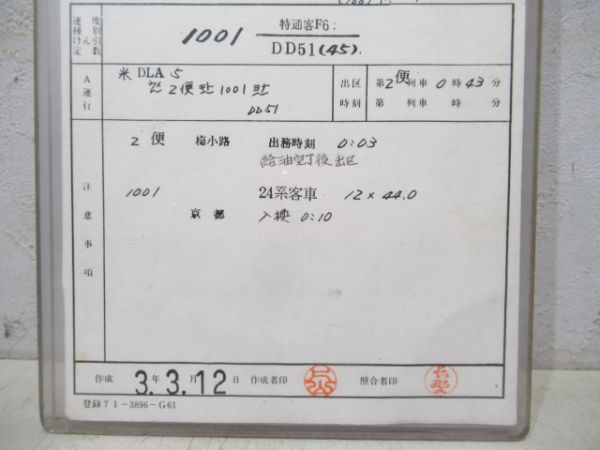 速度 種別 けん引 定数
1001
特通客F6:
DD51(45).
A運行
米 DLA 5
2便
1001
DD51
出区時刻
第2便列車 0時43分
第 列車 時 分
注意事項
2 便 梅小路 出務時刻 0:03
給油完了後出区
1001 24系客車 12×44.0
京都 入換 0:10
作成 3年3月12日 作成者印 照合者印
登録71-3896-G61